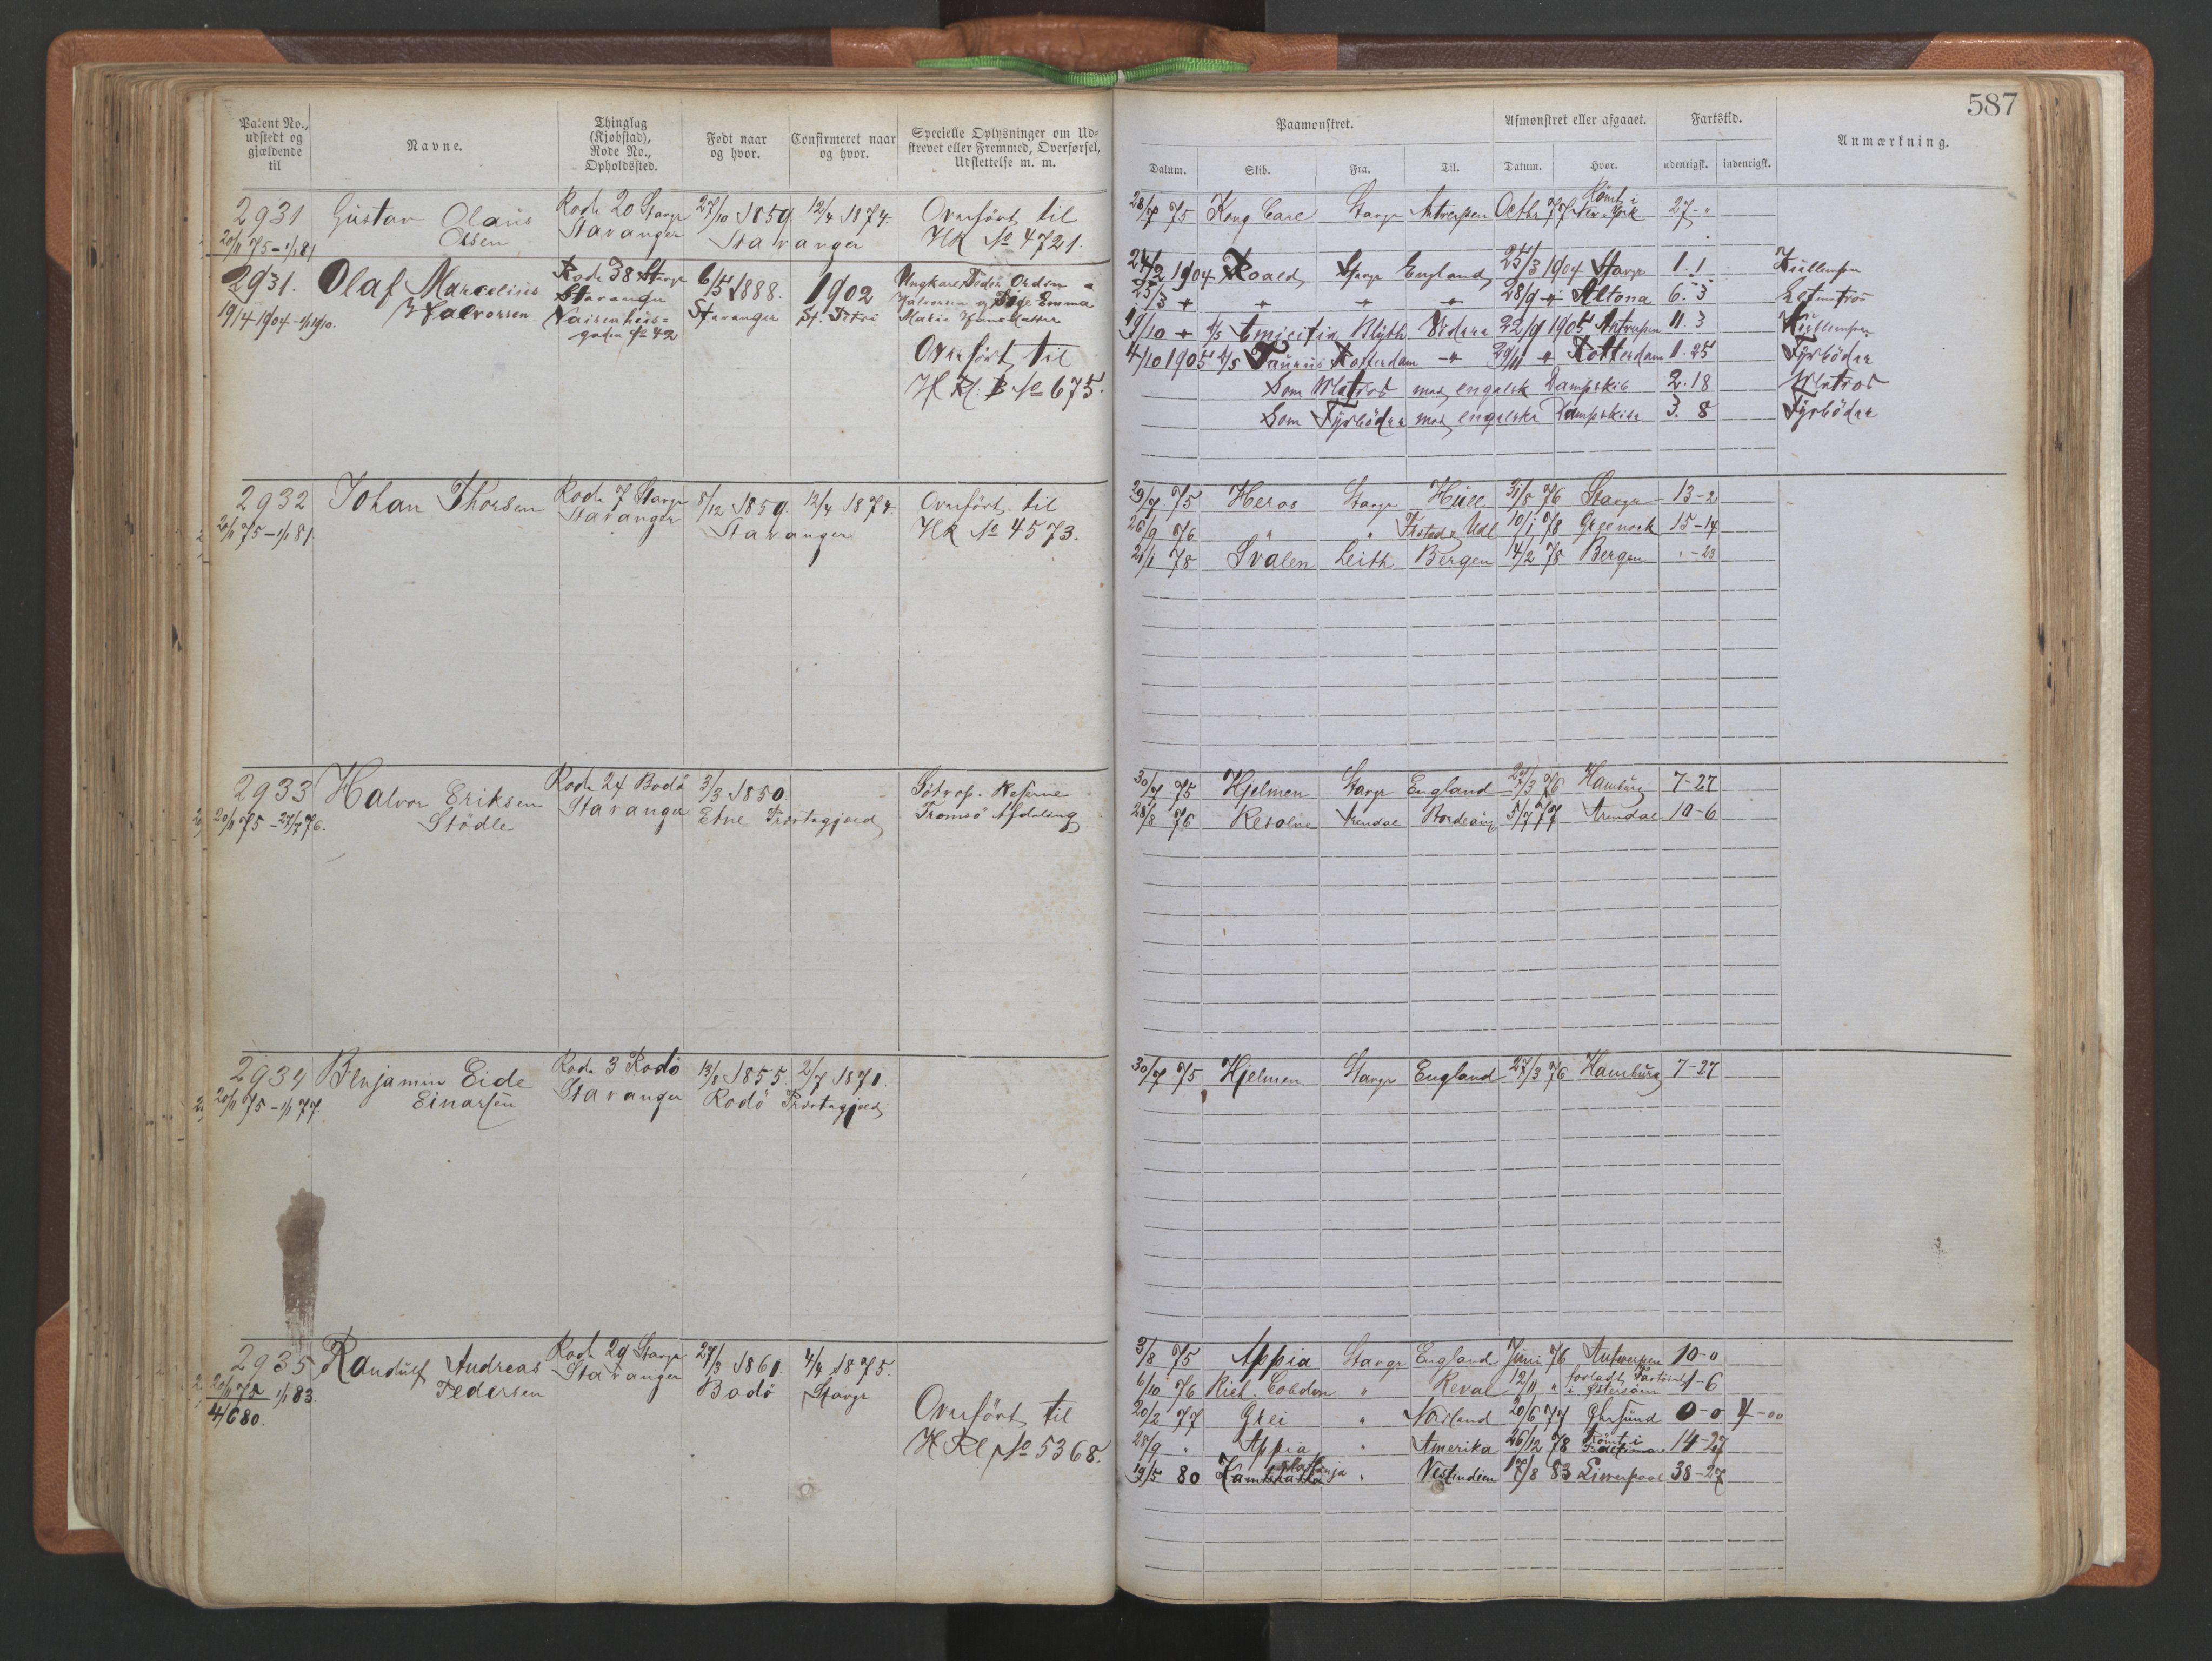 587
Patent No., udstedt og gjældende til
Navne.
Thinglag (Kjøbstad), Rode No., Opholdssted.
Født naar og hvor.
Confirmeret naar og hvor.
Specielle Oplysninger om Udstrevet eller Fremmed, Overførsel, Udslettelse m. m.
Paamønstret.
Afmønstret eller afgaaet.
Fartstid.
Anmærkning.
Datum. Skib. Fra. Til. Datum. Hvor. udenrigsk. indenrigsk.
2931 Gustav Olaus Rode 20 Stavgr 27/10 1859. 12/4 1874. Overført til
20/11 75 - 1/1 81 Olsen Stavanger Stavanger HR No 4721.
28/7 75 Kong Carl Stavgr Antwerpen Octbr 77 Rømt i New York 27 - "
2931. Olaf Marcelius Rode 38 Stavgr 6/5 1888. 1902 Ungkarl
19/4 1904 - 1/1 1910. Halvorsen Stavanger Stavanger St. Petri
Vaisenhus-
gaden No 42
Overført til
H Rl. B No 675.
24/2 1904 Roald Stavgr England 25/3 1904 Stavgr 1. 1
25/3 " " " " 28/9 " Altona 6. 3
19/10 " S/S Amicitia Blyth Videre 22/9 1905 Antwerpen 11. 3
4/10 1905 S/S Taurus Rotterdam " 29/11 " Rotterdam 1. 25 Fyrbøder
Som Matros med engelsk Dampskib 2. 18 Matros
Som Fyrbøder med engelske Dampskibe 3. 8 Fyrbøder
2932 Johan Thorsen Rode 7 Stavgr 5/12 1859. 12/4 1874. Overført til
20/11 75 - 1/1 81 Stavanger Stavanger HR No 4573.
29/7 75 Heros Stavgr Hull 31/8 76 Stavgr 13 - 2
26/9 76 " " Frstad & Udl 10/1 78 Greenock 15 - 14
21/1 78 Svalen Leith Bergen 14/2 78 Bergen " - 23
2933 Halvor Eriksen Rode 24 Bodø 3/3 1850. Sötrop. Reserve
20/11 75 - 27/7 76. Stödle Stavanger Etne Præstegjæld Tromsö Afdeling
30/7 75 Hjelmen Stavgr England 27/3 76 Hamburg 7 - 27
28/8 76 Resolve Arendal Bordeaux 5/7 77 Arendal 10 - 6
2934 Benjamin Eide Rode 3 Rodö 13/8 1855. 2/7 1871.
20/11 75 - 1/1 77. Einarsen Stavanger Rodö Præstegjæld
30/7 75 Hjelmen Stavgr England 27/3 76 Hamburg 7 - 27
2935 Randulf Andreas Rode 29 Stavgr 27/3 1861. 4/4 1875.
20/11 75 1/1 83. Pedersen Stavanger Bodö Stavgr
4/6 80.
Overført til
H Rl No 5368.
3/8 75 Appia Stavgr England Juni 76 Antwerpen 10 - 0
6/10 76 Rich. Cobden " Reval 12/11 " forladt Fartöiet i Östersöen 1 - 6
20/2 77 Grei " Nordland 20/6 77 Chrsund 0 - 0 4 - 00
28/9 " Appia " Amerika 26/12 78 Rømt i Baltimore 14 - 27
19/5 80 Kamtschatka " Vestindien 7/8 83 Liverpool 38 - 27